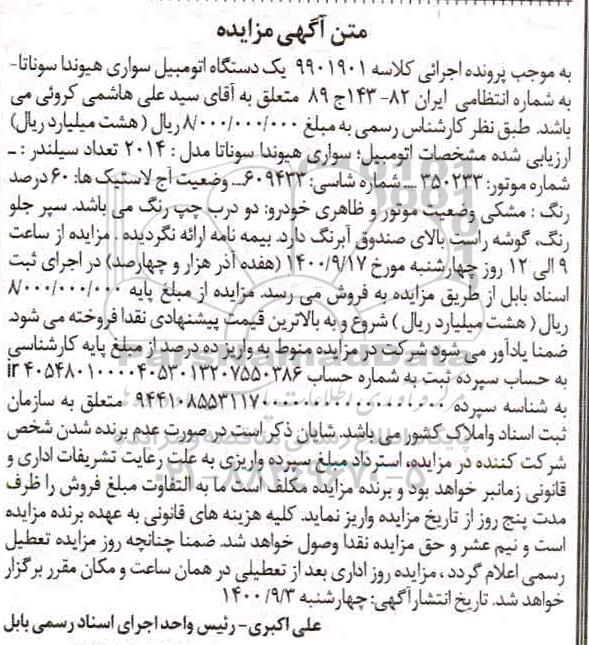 متن آگهی مزایده
به موجب پرونده اجرائی کلاسه ۹۹۰۱۹۰۱ یک دستگاه اتومبیل سواری هیوندا سوناتا-
به شماره انتظامی ایران ۸۲- ۱۴۳ج ۸۹ متعلق به آقای سید علی هاشمی کروئی می
باشد. طبق نظر کارشناس رسمی به مبلغ ۸/۰۰۰/۰۰۰/۰۰۰ ریال ( هشت میلیارد ریال)
ارزیابی شده مشخصات اتومبیل؛ سواری هیوندا سوناتا مدل : ۲۰۱۴ تعداد سیلندر : ــ
شماره موتور: ۳۵۰۲۳۳ ــ شماره شاسی: ۶۰۹۴۳۳ــ وضعیت آج لاستیک ها: ۶۰ درصد
رنگ : مشکی وضعیت موتور و ظاهری خودرو: دو درب چپ رنگ می باشد. سپر جلو
رنگ، گوشه راست بالای صندوق آبرنگ دارد. بیمه نامه ارائه نگردیده . مزایده از ساعت
۹ الی ۱۲ روز چهارشنبه مورخ ۱۴۰۰/۹/۱۷ (هفده آذر هزار و چهارصد) در اجرای ثبت
اسناد بابل از طریق مزایده به فروش می رسد. مزایده از مبلغ پایه ۸/۰۰۰/۰۰۰/۰۰۰
ریال ( هشت میلیارد ریال ) شروع و به بالاترین قیمت پیشنهادی نقدا فروخته می شود.
ضمنا یادآور می شود شرکت در مزایده منوط به واریز ده درصد از مبلغ پایه کارشناسی
به حساب سپرده ثبت به شماره حساب
به شناسه سپرده متعلق به سازمان
ثبت اسناد واملاک کشور می باشد. شایان ذکر است در صورت عدم برنده شدن شخص
شرکت کننده در مزایده، استرداد مبلغ سپرده واریزی به علت رعایت تشریفات اداری و
قانونی زمانبر خواهد بود و برنده مزایده مکلف است ما به التفاوت مبلغ فروش را ظرف
مدت پنج روز از تاریخ مزایده واریز نماید. کلیه هزینه های قانونی به عهده برنده مزایده
است و نیم عشر و حق مزایده نقدا وصول خواهد شد. ضمنا چنانچه روز مزایده تعطیل
رسمی اعلام گردد، مزایده روز اداری بعد از تعطیلی در همان ساعت و مکان مقرر برگزار
خواهد شد. تاریخ انتشارآگهی: چهارشنبه ۱۴۰۰/۹/۳
علی اکبری- رئیس واحد اجرای اسناد رسمی بابل
ParsNamadData
۰۲۱-۸۸۳۴۹۶۷۰-۵